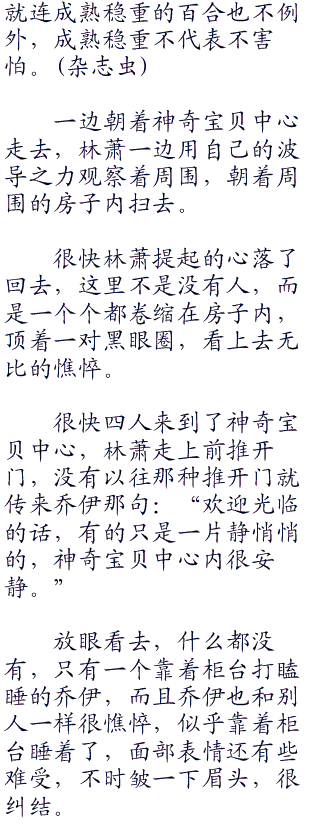 就连成熟稳重的百合也不例
外，成熟稳重不代表不害
怕。(杂志虫)
一边朝着神奇宝贝中心
走去，林萧一边用自己的波
导之力观察着周围，朝着周
围的房子内扫去。
很快林萧提起的心落了
回去，这里不是没有人，而
是一个个都卷缩在房子内，
顶着一对黑眼圈，看上去无
比的憔悴。
很快四人来到了神奇宝
贝中心，林萧走上前推开
门，没有以往那种推开门就
传来乔伊那句：“欢迎光临
的话，有的只是一片静悄悄
的，神奇宝贝中心内很安
静。”
放眼看去，什么都没
有，只有一个靠着柜台打瞌
睡的乔伊，而且乔伊也和别
人一样很憔悴，似乎靠着柜
台睡着了，面部表情还有些
难受，不时皱一下眉头，很
纠结。